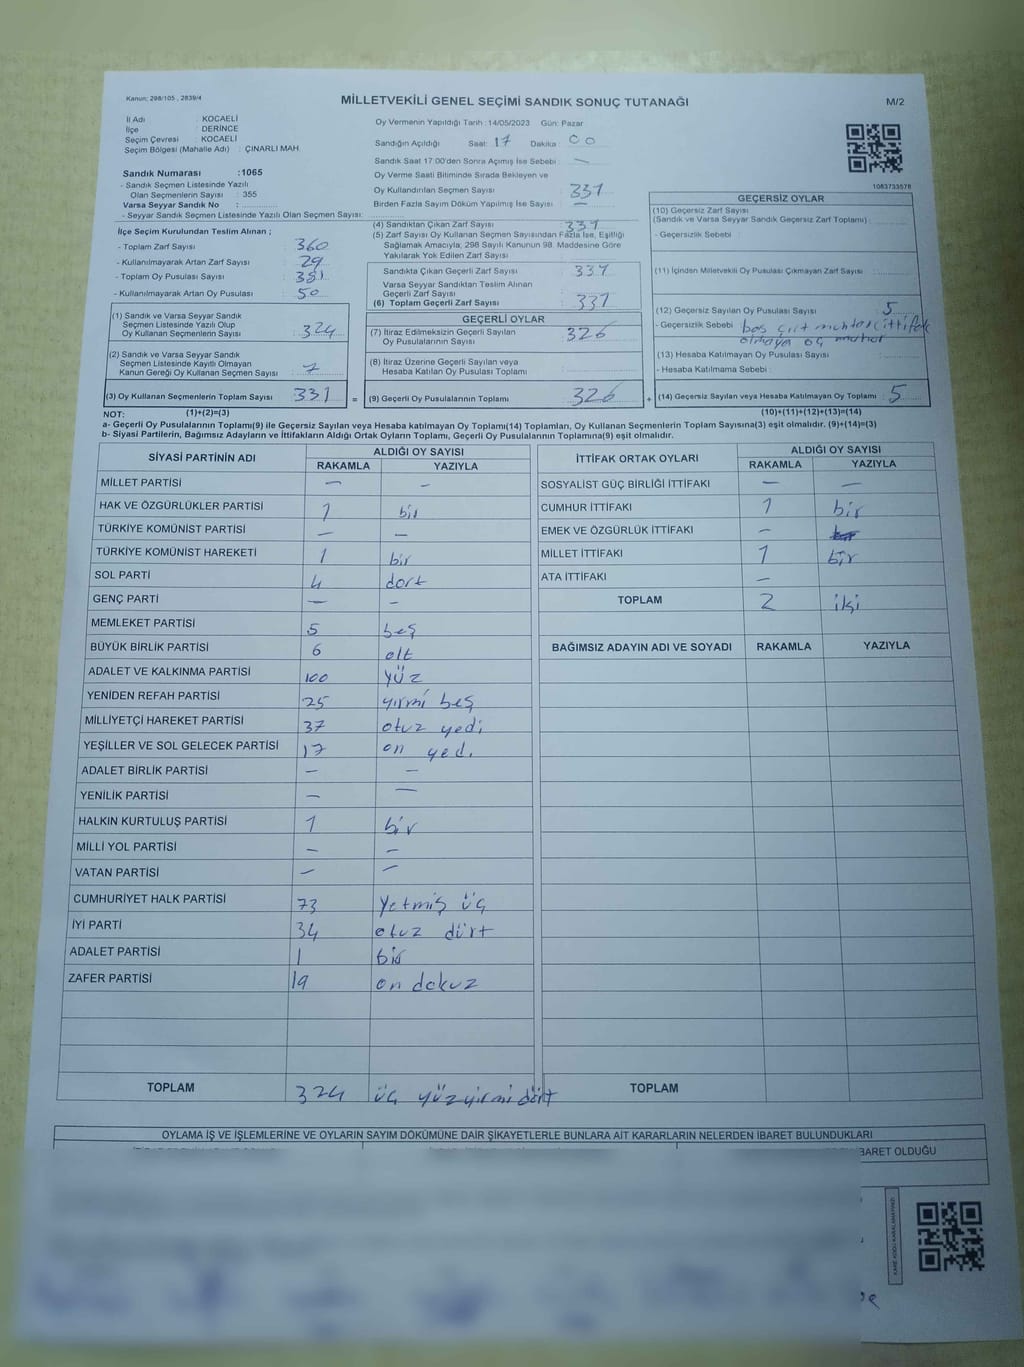 Kanun: 298/105 , 2839/4
MİLLETVEKİLİ GENEL SEÇİMİ SANDIK SONUÇ TUTANAĞI
M/2
İl Adı : KOCAELİ
İlçe : DERİNCE
Seçim Çevresi : KOCAELİ
Seçim Bölgesi (Mahalle Adı) : ÇINARLI MAH.
Sandık Numarası :1065
- Sandık Seçmen Listesinde Yazılı
Olan Seçmenlerin Sayısı : 355
Varsa Seyyar Sandık No :
- Seyyar Sandık Seçmen Listesinde Yazılı Olan Seçmen Sayısı:
İlçe Seçim Kurulundan Teslim Alınan ;
- Toplam Zarf Sayısı : 360
- Kullanılmayarak Artan Zarf Sayısı : 29
- Toplam Oy Pusulası Sayısı : 381
- Kullanılmayarak Artan Oy Pusulası : 50
(1) Sandık ve Varsa Seyyar Sandık
Seçmen Listesinde Yazılı Olup
Oy Kullanan Seçmenlerin Sayısı : 324
(2) Sandık ve Varsa Seyyar Sandık
Seçmen Listesinde Kayıtlı Olmayan
Kanun Gereği Oy Kullanan Seçmen Sayısı : 7
(3) Oy Kullanan Seçmenlerin Toplam Sayısı : 331
Oy Vermenin Yapıldığı Tarih : 14/05/2023 Gün: Pazar
Sandığın Açıldığı Saat: 17 Dakika : 00
Sandık Saat 17:00'den Sonra Açımış İse Sebebi : —
Oy Verme Saati Bitiminde Sırada Bekleyen ve
Oy Kullandırılan Seçmen Sayısı : 331
Birden Fazla Sayım Döküm Yapılmış İse Sayısı : —
(4) Sandıktan Çıkan Zarf Sayısı : 331
(5) Zarf Sayısı Oy Kullanan Seçmen Sayısından Fazla İse, Eşitliği
Sağlamak Amacıyla; 298 Sayılı Kanunun 98. Maddesine Göre
Yakılarak Yok Edilen Zarf Sayısı :
Sandıkta Çıkan Geçerli Zarf Sayısı : 331
Varsa Seyyar Sandıktan Teslim Alınan
Geçerli Zarf Sayısı :
(6) Toplam Geçerli Zarf Sayısı : 331
GEÇERLİ OYLAR
(7) İtiraz Edilmeksizin Geçerli Sayılan
Oy Pusulalarının Sayısı : 326
(8) İtiraz Üzerine Geçerli Sayılan veya
Hesaba Katılan Oy Pusulası Toplamı :
= (9) Geçerli Oy Pusulalarının Toplamı : 326 +
1083733578
GEÇERSİZ OYLAR
(10) Geçersiz Zarf Sayısı
(Sandık ve Varsa Seyyar Sandık Geçersiz Zarf Toplamı) :
- Geçersizlik Sebebi :
(11) İçinden Milletvekili Oy Pusulası Çıkmayan Zarf Sayısı :
(12) Geçersiz Sayılan Oy Pusulası Sayısı : 5
- Geçersizlik Sebebi : boş çift muhtar ittifak
olmaya üç muhar
(13) Hesaba Katılmayan Oy Pusulası Sayısı :
- Hesaba Katılmama Sebebi :
(14) Geçersiz Sayılan veya Hesaba Katılmayan Oy Toplamı : 5
NOT: (1)+(2)=(3) (10)+(11)+(12)+(13)=(14)
a- Geçerli Oy Pusulalarının Toplamı(9) ile Geçersiz Sayılan veya Hesaba katılmayan Oy Toplamı(14) Toplamları, Oy Kullanan Seçmenlerin Toplam Sayısına(3) eşit olmalıdır. (9)+(14)=(3)
b- Siyasi Partilerin, Bağımsız Adayların ve İttifakların Aldığı Ortak Oyların Toplamı, Geçerli Oy Pusulalarının Toplamına(9) eşit olmalıdır.
SİYASİ PARTİNİN ADI ALDIĞI OY SAYISI
RAKAMLA YAZIYLA
MİLLET PARTİSİ — —
HAK VE ÖZGÜRLÜKLER PARTİSİ 1 bir
TÜRKİYE KOMÜNİST PARTİSİ — —
TÜRKİYE KOMÜNİST HAREKETİ 1 bir
SOL PARTİ 4 dort
GENÇ PARTİ — —
MEMLEKET PARTİSİ 5 beş
BÜYÜK BİRLİK PARTİSİ 6 alt
ADALET VE KALKINMA PARTİSİ 100 yüz
YENİDEN REFAH PARTİSİ 25 yirmi beş
MİLLİYETÇİ HAREKET PARTİSİ 37 otuz yedi
YEŞİLLER VE SOL GELECEK PARTİSİ 17 on yedi
ADALET BİRLİK PARTİSİ — —
YENİLİK PARTİSİ — —
HALKIN KURTULUŞ PARTİSİ 1 bir
MİLLİ YOL PARTİSİ — —
VATAN PARTİSİ — —
CUMHURİYET HALK PARTİSİ 73 yetmiş üç
İYİ PARTİ 34 otuz dürt
ADALET PARTİSİ 1 bir
ZAFER PARTİSİ 19 on dokuz
TOPLAM 324 üç yüzyirmi dört
İTTİFAK ORTAK OYLARI ALDIĞI OY SAYISI
RAKAMLA YAZIYLA
SOSYALİST GÜÇ BİRLİĞİ İTTİFAKI — —
CUMHUR İTTİFAKI 1 bir
EMEK VE ÖZGÜRLÜK İTTİFAKI —
MİLLET İTTİFAKI 1 bir
ATA İTTİFAKI —
TOPLAM 2 iki
BAĞIMSIZ ADAYIN ADI VE SOYADI RAKAMLA YAZIYLA
TOPLAM
OYLAMA İŞ VE İŞLEMLERİNE VE OYLARIN SAYIM DÖKÜMÜNE DAİR ŞİKAYETLERLE BUNLARA AİT KARARLARIN NELERDEN İBARET BULUNDUKLARI
BARET OLDUĞU
KARE KODU KARALAMAYINIZ!